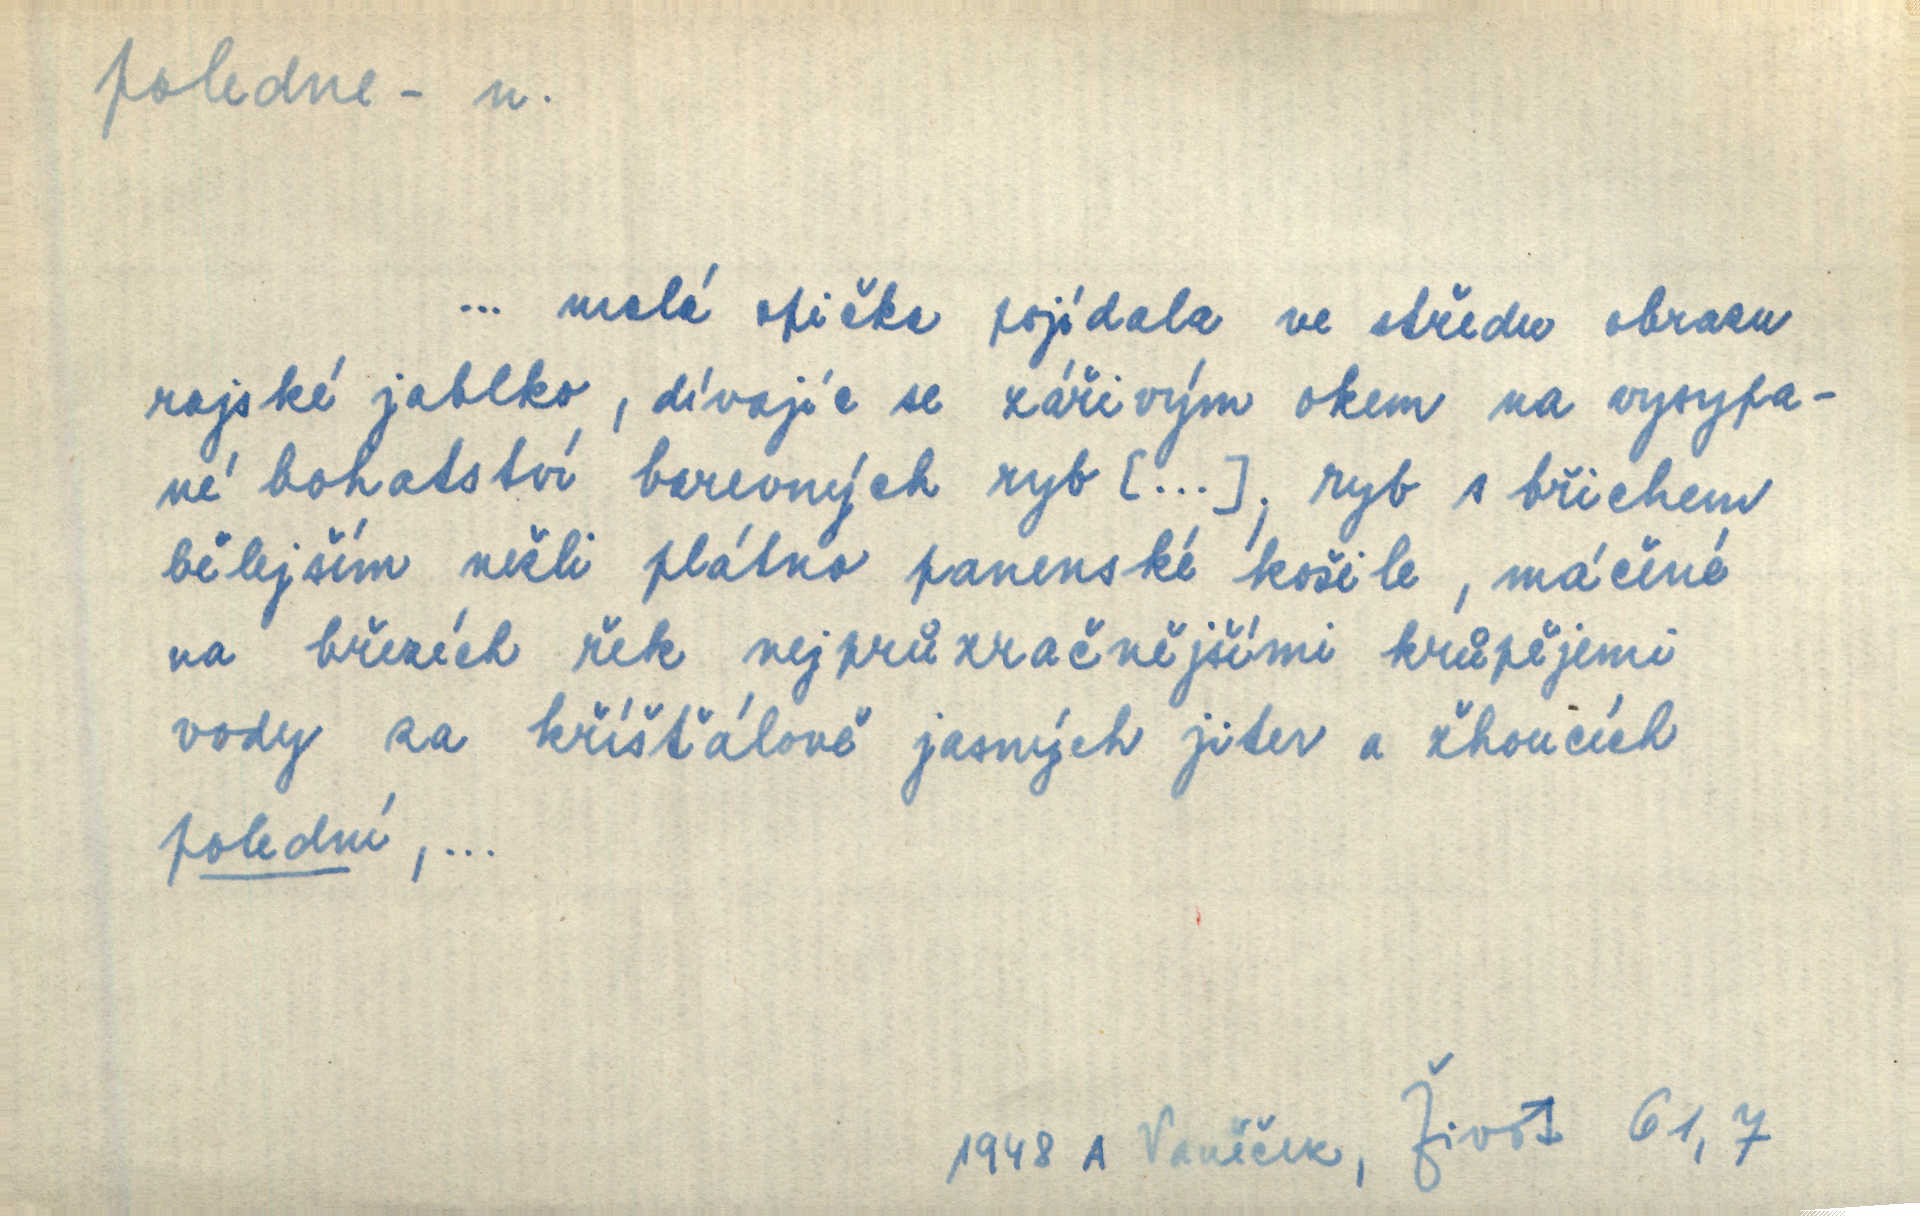 poledne - n.
... malá opička pojídala ve středu obrazu
rajské jablko, dívajíc se zářivým okem na vysypa-
né bohatství barevných ryb [...], ryb s břichem
bělejším nežli plátno panenské košile, máčené
na březích řek nejprůzračnějšími krůpějemi
vody za křišťálově jasných jiter a žhoucích
polední, ...
1948 A Vaněček, Život 61, 7